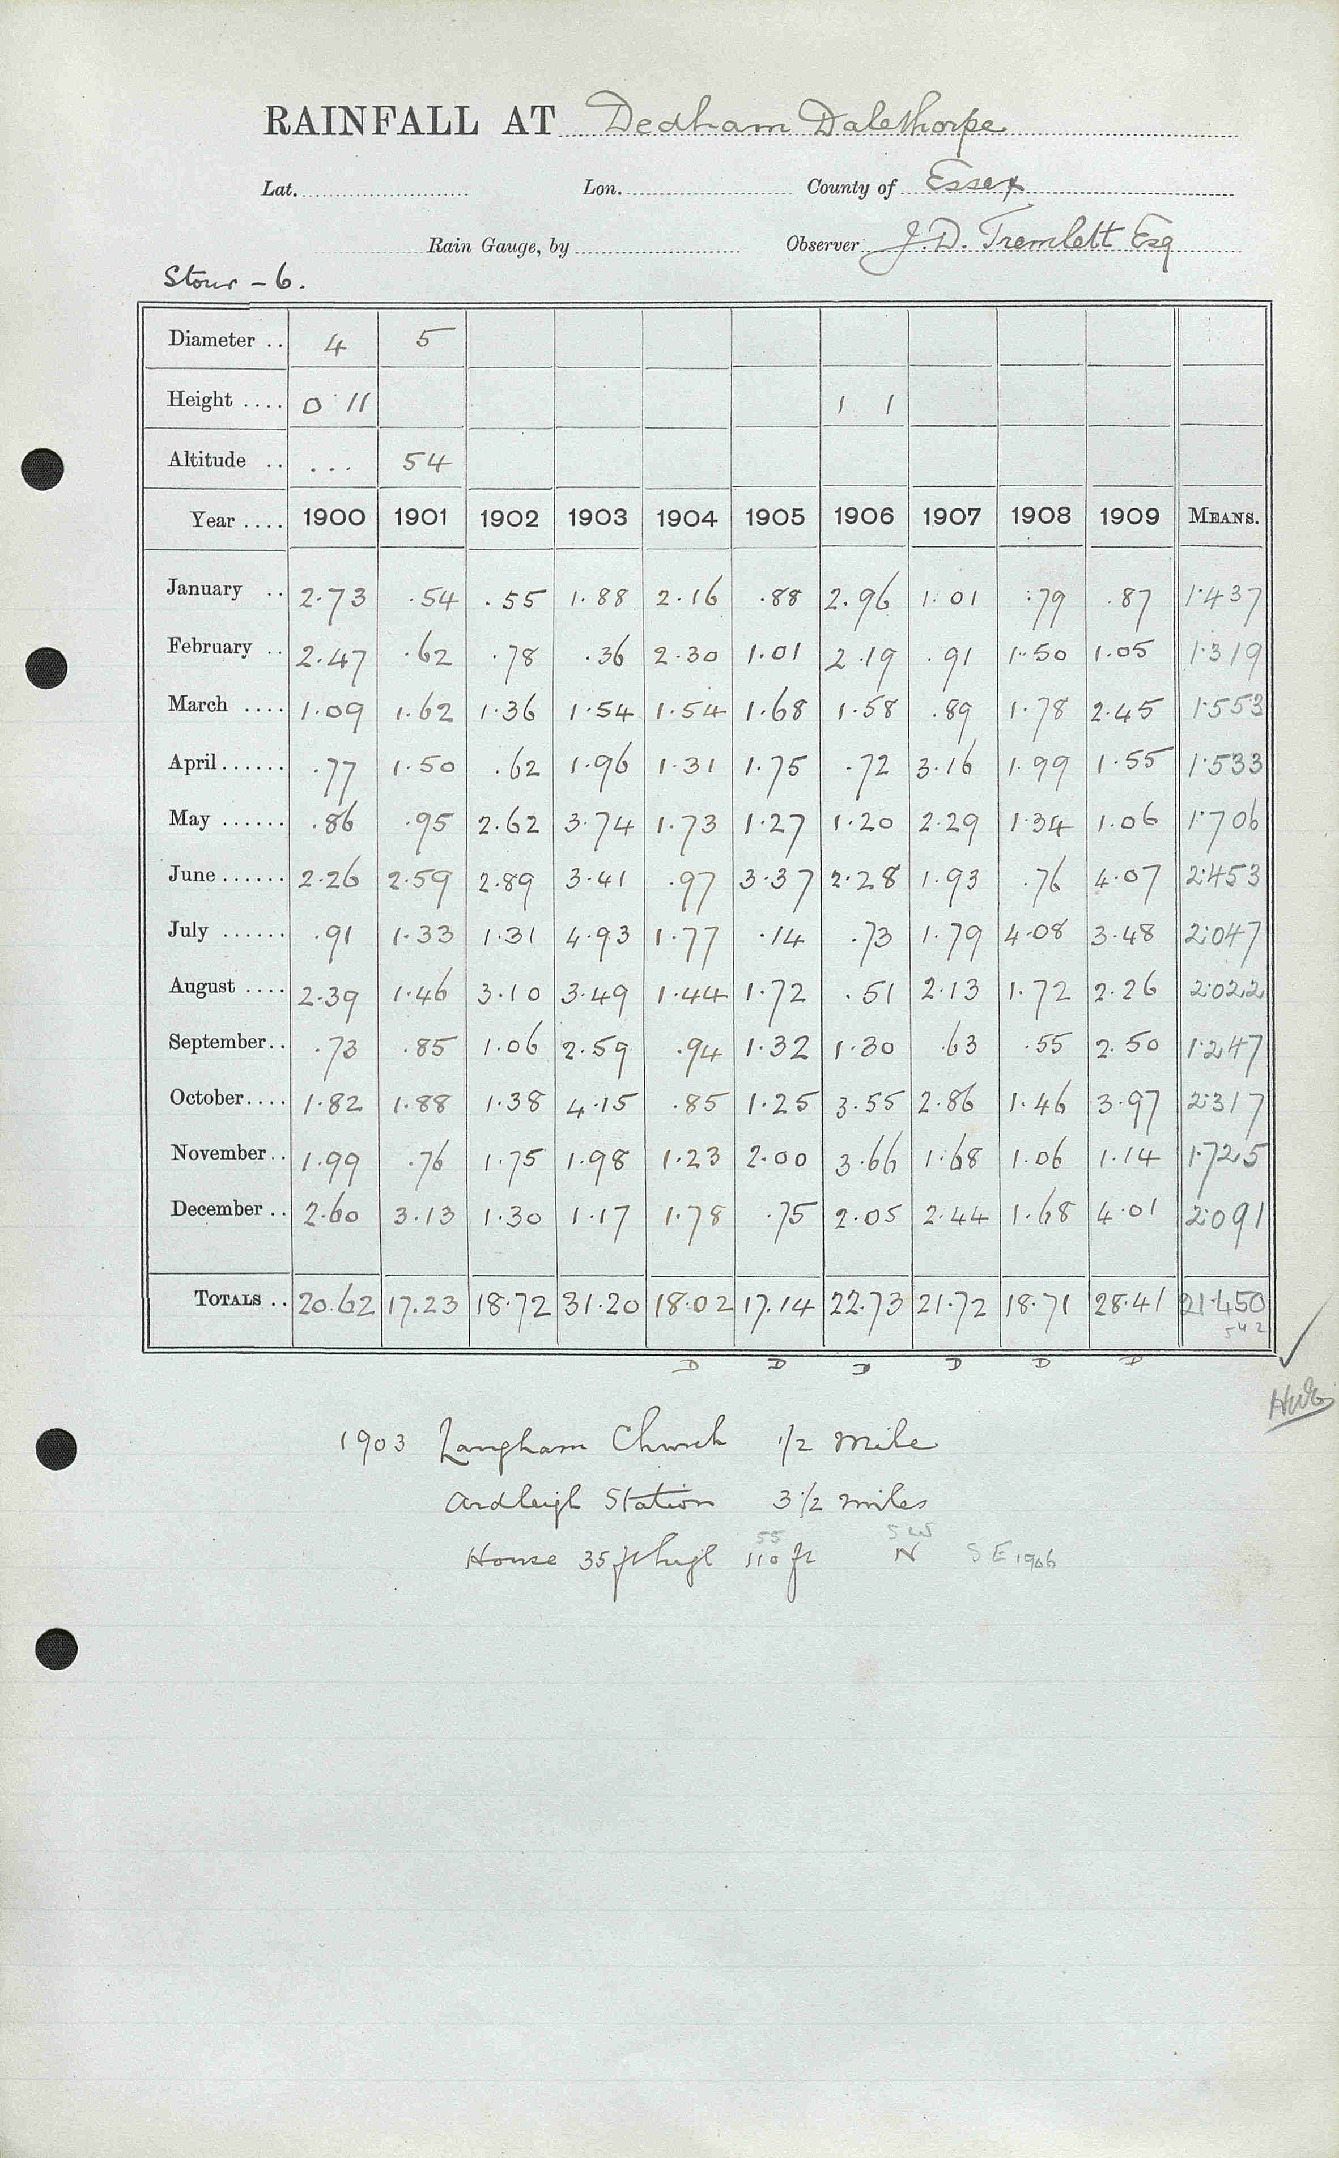 RAINFALL AT Dedham Dalethorpe
Lat. Lon. County of Essex
Rain Gauge, by Observer J. D. Tremlett Esq
Stour - 6.
Diameter .. 4 5
Height .... 0 11 1 1
Altitude .. ... 54
Year .... 1900 1901 1902 1903 1904 1905 1906 1907 1908 1909 MEANS.
January .. 2.73 .54 .55 1.88 2.16 .88 2.96 1.01 .79 .87 1.437
February .. 2.47 .62 .78 .36 2.30 1.01 2.19 .91 1.50 1.05 1.319
March .... 1.09 1.62 1.36 1.54 1.54 1.68 1.58 .89 1.78 2.45 1.553
April ...... .77 1.50 .62 1.96 1.31 1.75 .72 3.16 1.99 1.55 1.533
May ...... .86 .95 2.62 3.74 1.73 1.27 1.20 2.29 1.34 1.06 1.706
June ...... 2.26 2.59 2.89 3.41 .97 3.37 2.28 1.93 .76 4.07 2.453
July ...... .91 1.33 1.31 4.93 1.77 .14 .73 1.79 4.08 3.48 2.047
August .... 2.39 1.46 3.10 3.49 1.44 1.72 .51 2.13 1.72 2.26 2.022
September .. .73 .85 1.06 2.59 .94 1.32 1.30 .63 .55 2.50 1.247
October .... 1.82 1.88 1.38 4.15 .85 1.25 3.55 2.86 1.46 3.97 2.317
November .. 1.99 .76 1.75 1.98 1.23 2.00 3.66 1.68 1.06 1.14 1.725
December .. 2.60 3.13 1.30 1.17 1.78 .75 2.05 2.44 1.68 4.01 2.091
TOTALS .. 20.62 17.23 18.72 31.20 18.02 17.14 22.73 21.72 18.71 28.41 21.450
542
D D D D D D
1903 Langham Church 1/2 mile
Ardleigh Station 3 1/2 miles
55 SW
House 35 ft high 110 ft N SE 1906